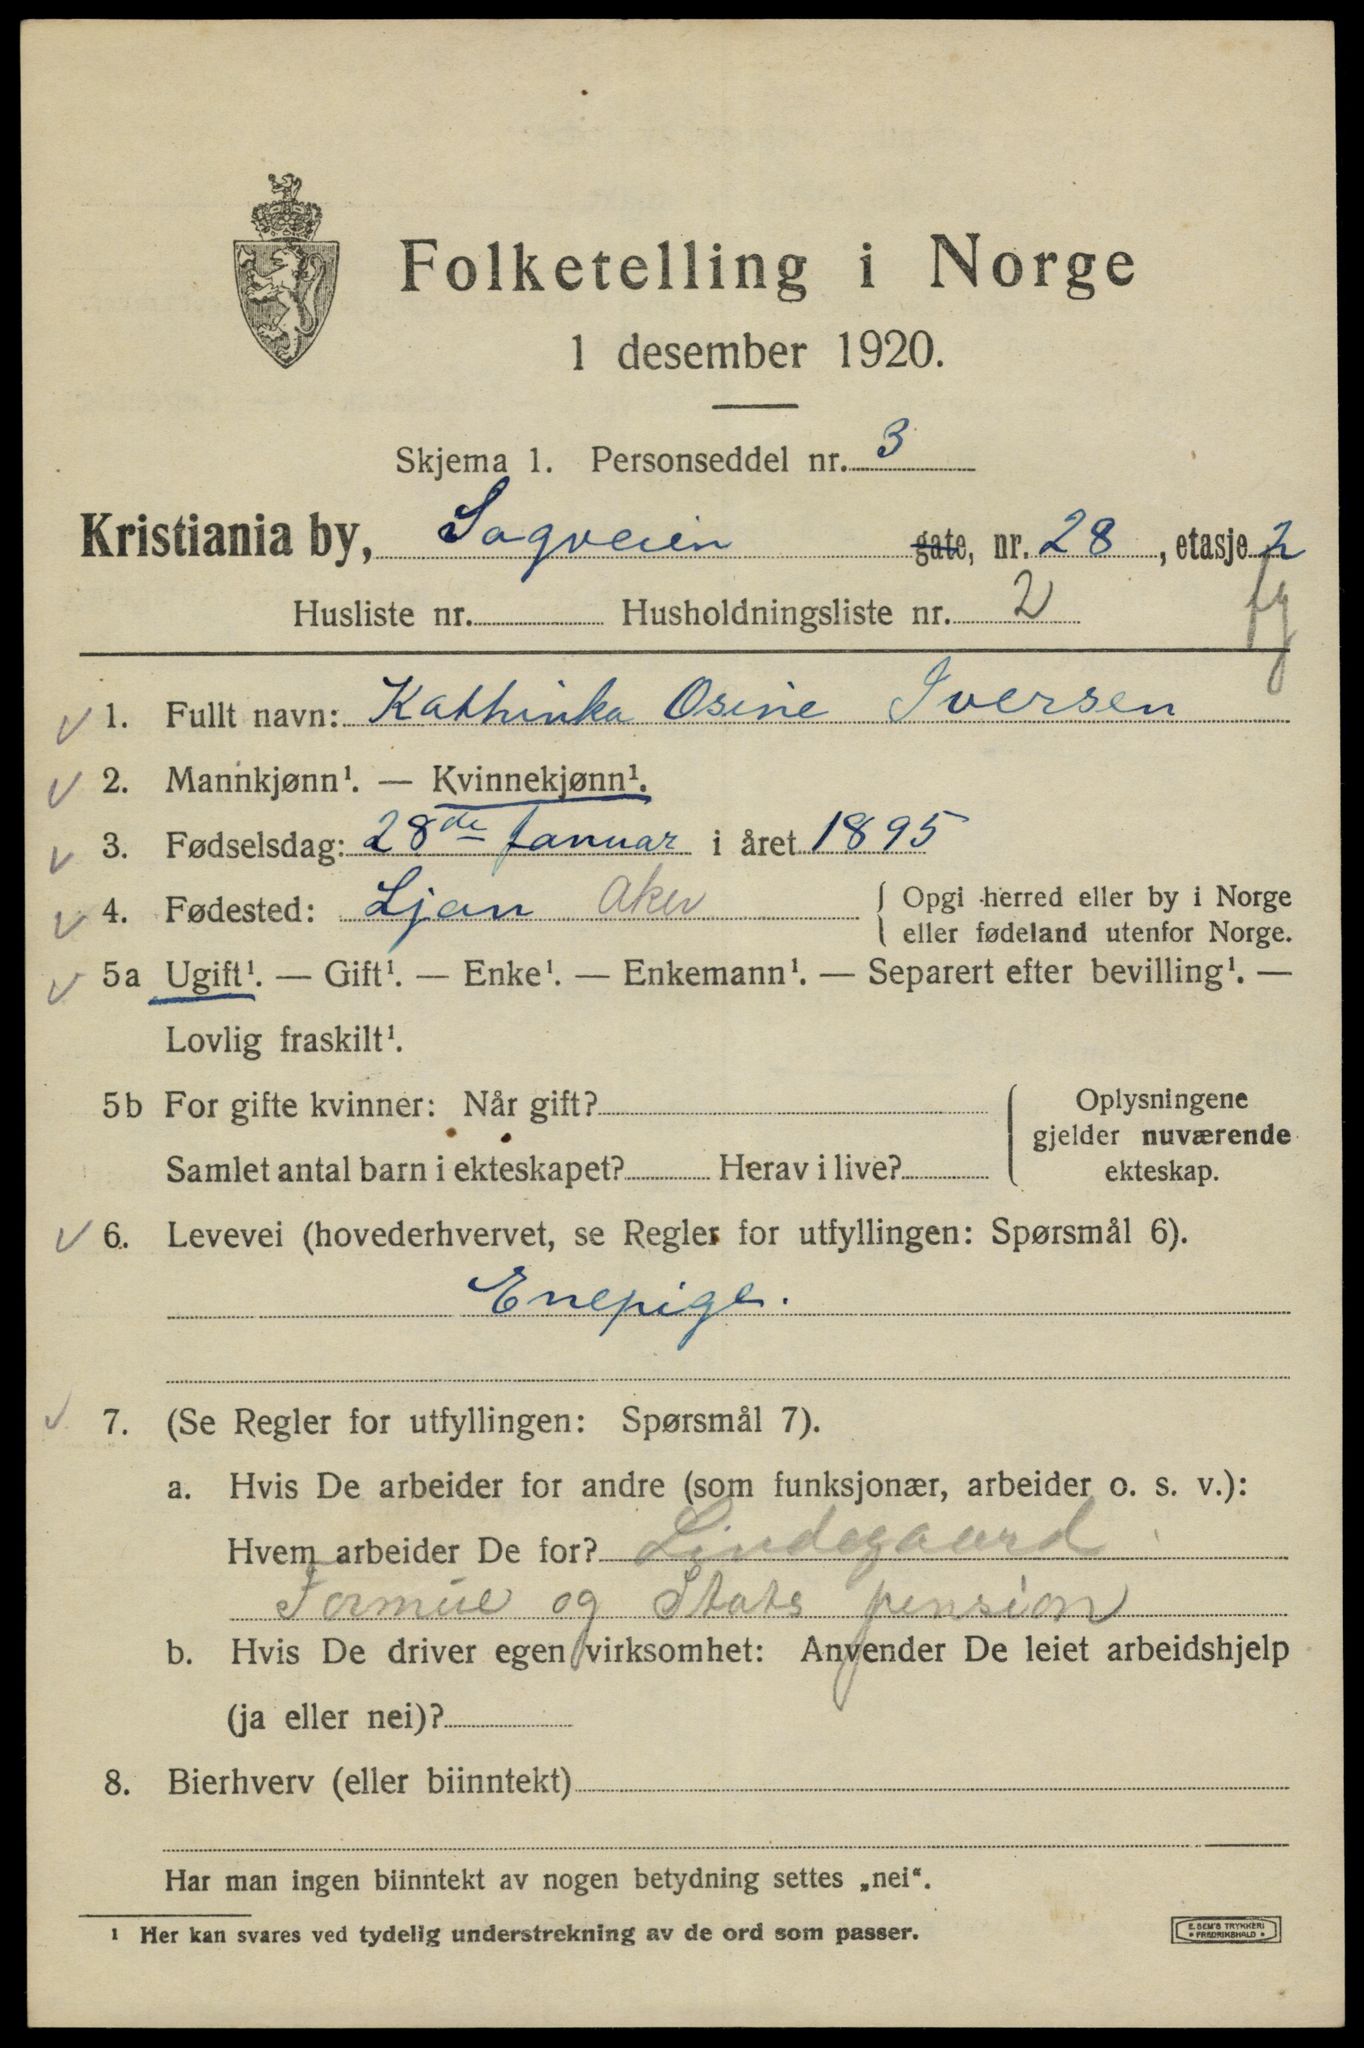 Folketelling i Norge
1 desember 1920.
Skjema 1. Personseddel nr. 3
Kristiania by, Sagveien gate, nr. 28, etasje 2
Husliste nr. Husholdningsliste nr. 2
1. Fullt navn: Kathinka Osine Iversen
2. Mannkjønn¹. — Kvinnekjønn¹.
3. Fødselsdag: 28de Januar i året 1895
4. Fødested: Ljan Aker { Opgi herred eller by i Norge
eller fødeland utenfor Norge.
5a Ugift¹. — Gift¹. — Enke¹. — Enkemann¹. — Separert efter bevilling¹. —
Lovlig fraskilt¹.
5b For gifte kvinner: Når gift?
Samlet antal barn i ekteskapet? Herav i live?
Oplysningene
gjelder nuværende
ekteskap.
6. Levevei (hovederhvervet, se Regler for utfyllingen: Spørsmål 6).
Enepige.
7. (Se Regler for utfyllingen: Spørsmål 7).
a. Hvis De arbeider for andre (som funksjonær, arbeider o. s. v.):
Hvem arbeider De for? Lindegaard
Formue og Stats pension
b. Hvis De driver egen virksomhet: Anvender De leiet arbeidshjelp
(ja eller nei)?
8. Bierhverv (eller biinntekt)
Har man ingen biinntekt av nogen betydning settes „nei“.
¹ Her kan svares ved tydelig understrekning av de ord som passer.
E. SEM'S TRYKKERI
• FREDRIKSHALD •